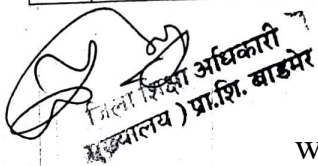 जिला शिक्षा अधिकारी
मुख्यालय ) प्रा.शि. बाडमेर
W